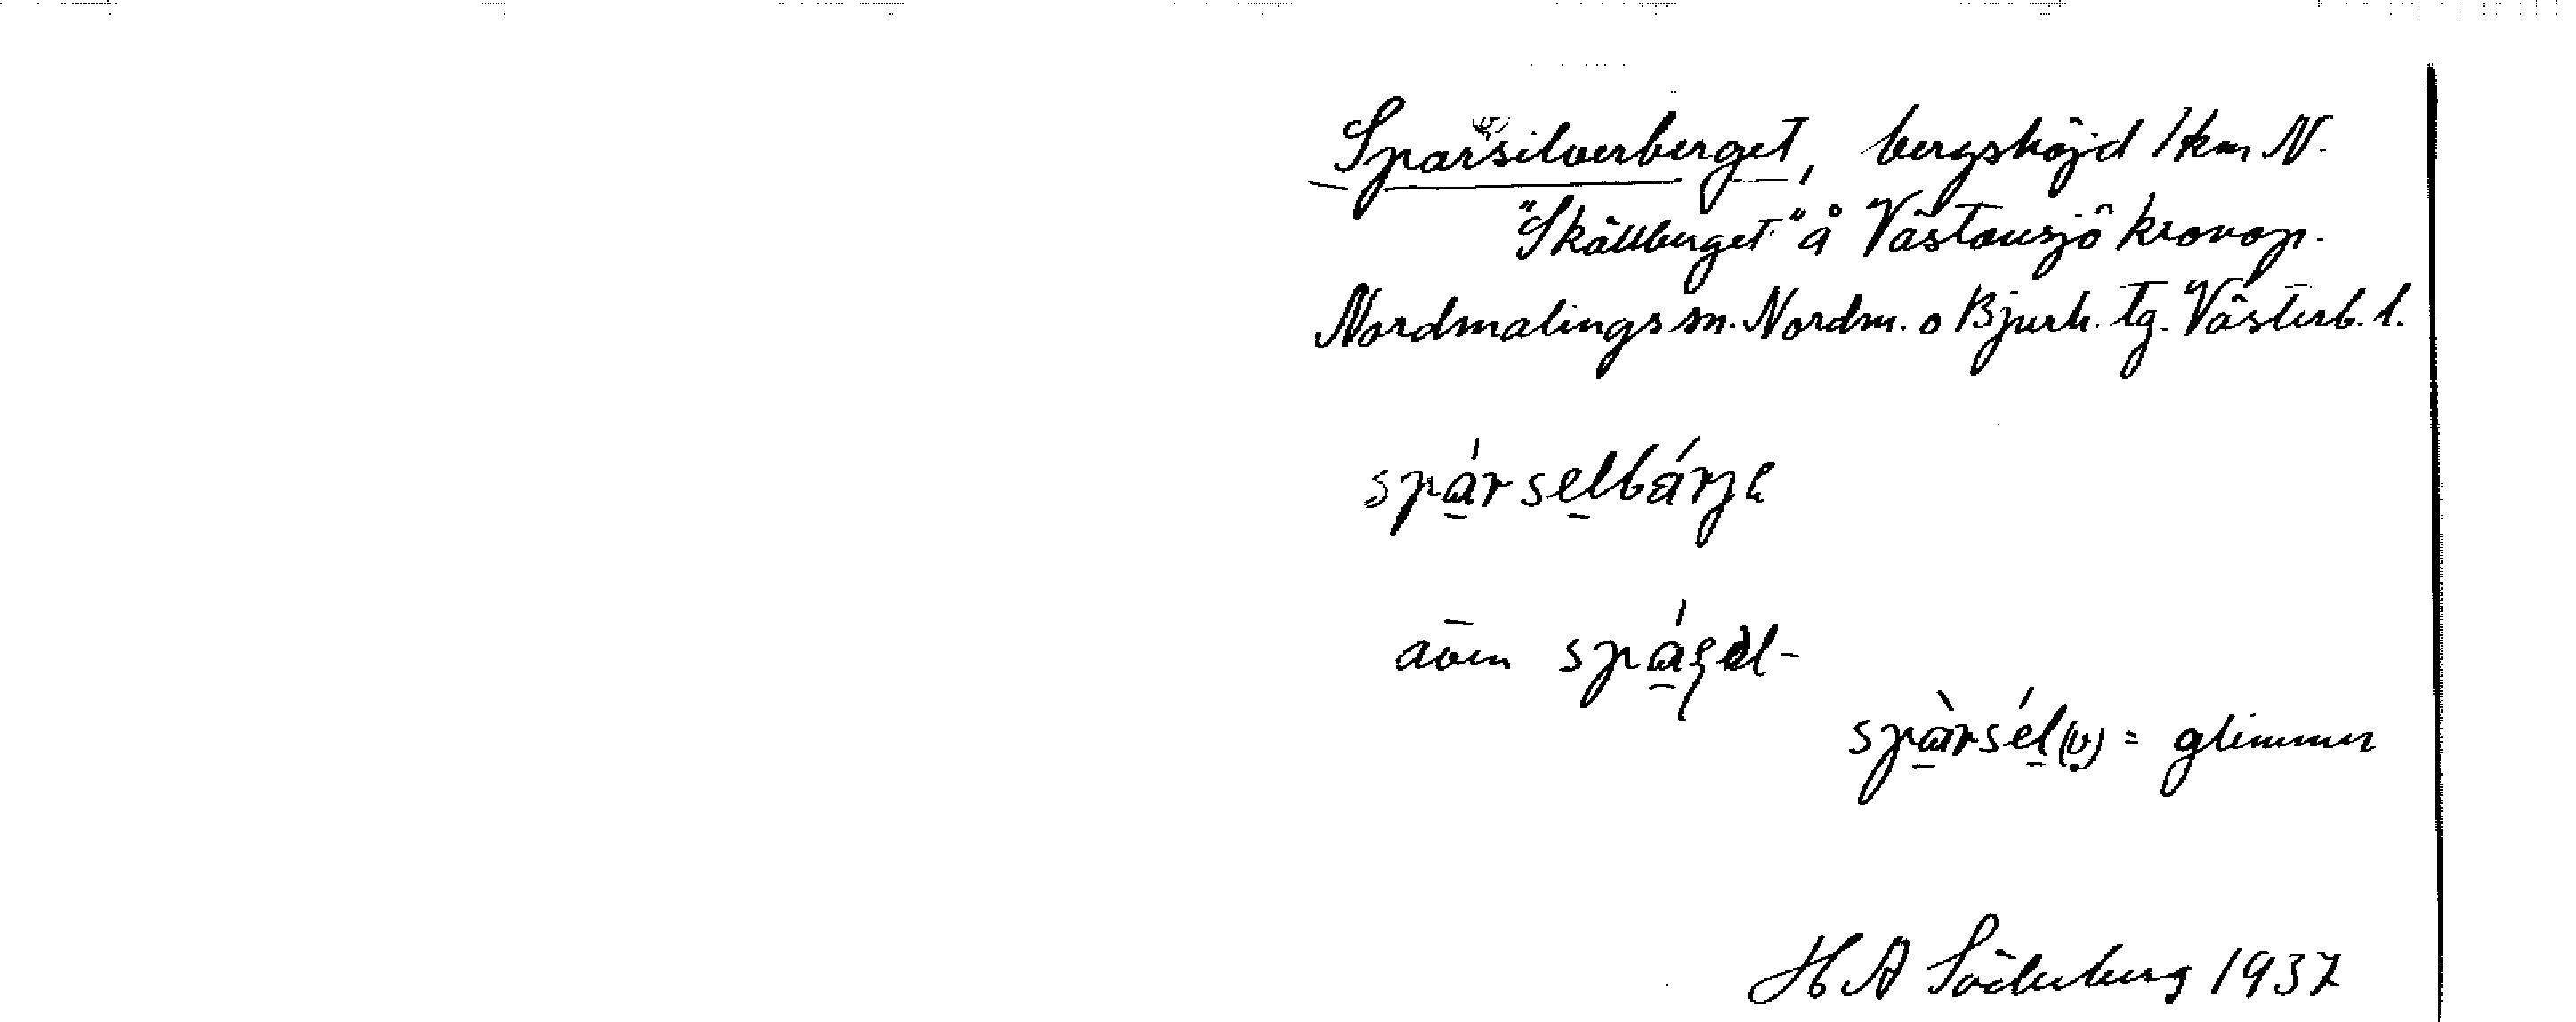 Sparsilverberget, bergshöjd 1 km N.
"Skällberget" å Västansjö kronop.
Nordmalings sn. Nordm. o Bjurh. tg. Västerb. l.
spá̱rse̱lbárjə
även spá̱ʂəl-
spà̱rsé̱l(v) = glimmer
H A Söderberg 1937